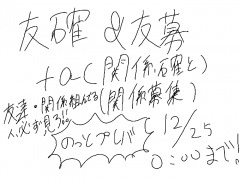 友確&友募
+α(関係確と)
(関係募集)
友達・関係組んでる
人必ず見ろ!!
のっとプレバ
12/25
0:00まで!